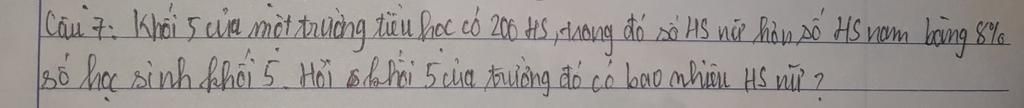 Câu 7: Khối 5 của một trường tiểu học có 200 HS, trong đó số HS nữ hơn số HS nam bằng 8%
số học sinh khối 5. Hỏi khối 5 của trường đó có bao nhiêu HS nữ?